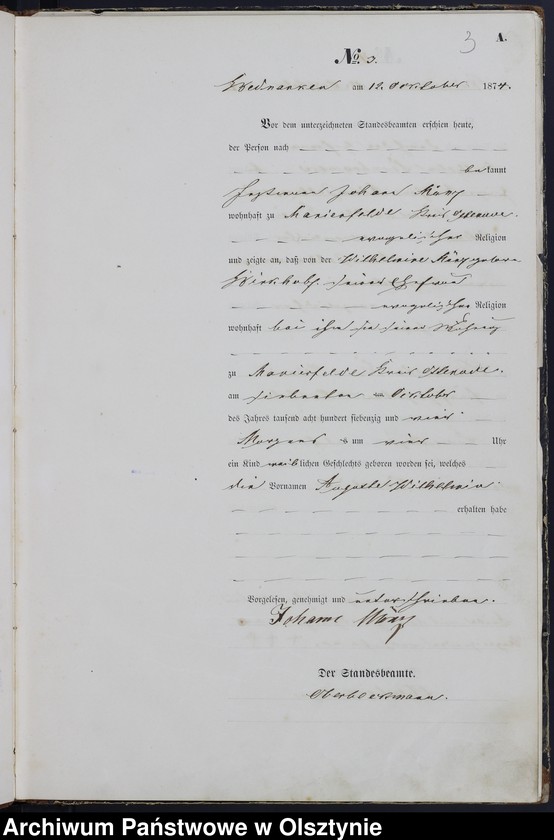 3
A.
No. 3.
am 12. October 1874.
Vor dem unterzeichneten Standesbeamten erschien heute,
der Person nach
bekannt
Johann
wohnhaft zu Marienfelde Kreis Osterode.
evangelischer Religion
und zeigte an, daß von der Wilhelmine geborene
seiner Ehefrau
evangelischer Religion
wohnhaft bei ihm in seiner Wohnung
zu Marienfelde Kreis Osterode.
am siebenten October
des Jahres tausend acht hundert siebenzig und vier
Morgens um vier Uhr
ein Kind weiblichen Geschlechts geboren worden sei, welches
die Vornamen Auguste Wilhelmine
erhalten habe
Vorgelesen, genehmigt und unterschrieben.
Johann
Der Standesbeamte.
Archiwum Państwowe w Olsztynie